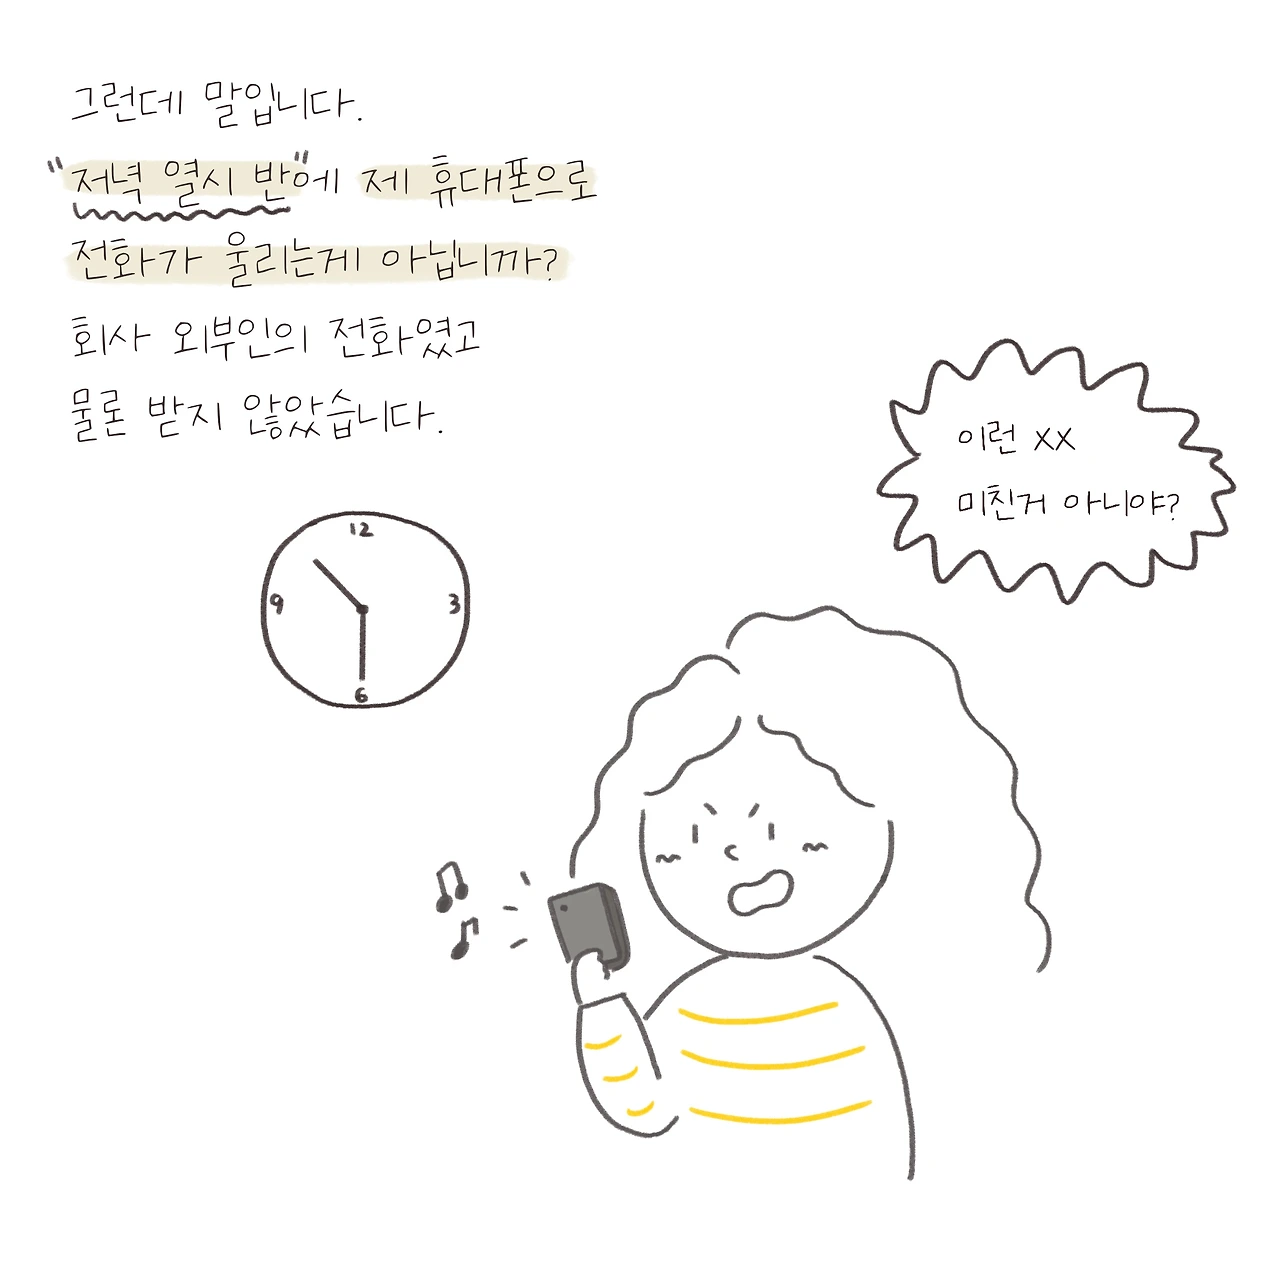 그런데 말입니다.
"저녁 열시 반"에 제 휴대폰으로
전화가 울리는게 아닙니까?
회사 외부인의 전화였고
물론 받지 않았습니다.
이런 XX
미친거 아니야?
12
9
3
6